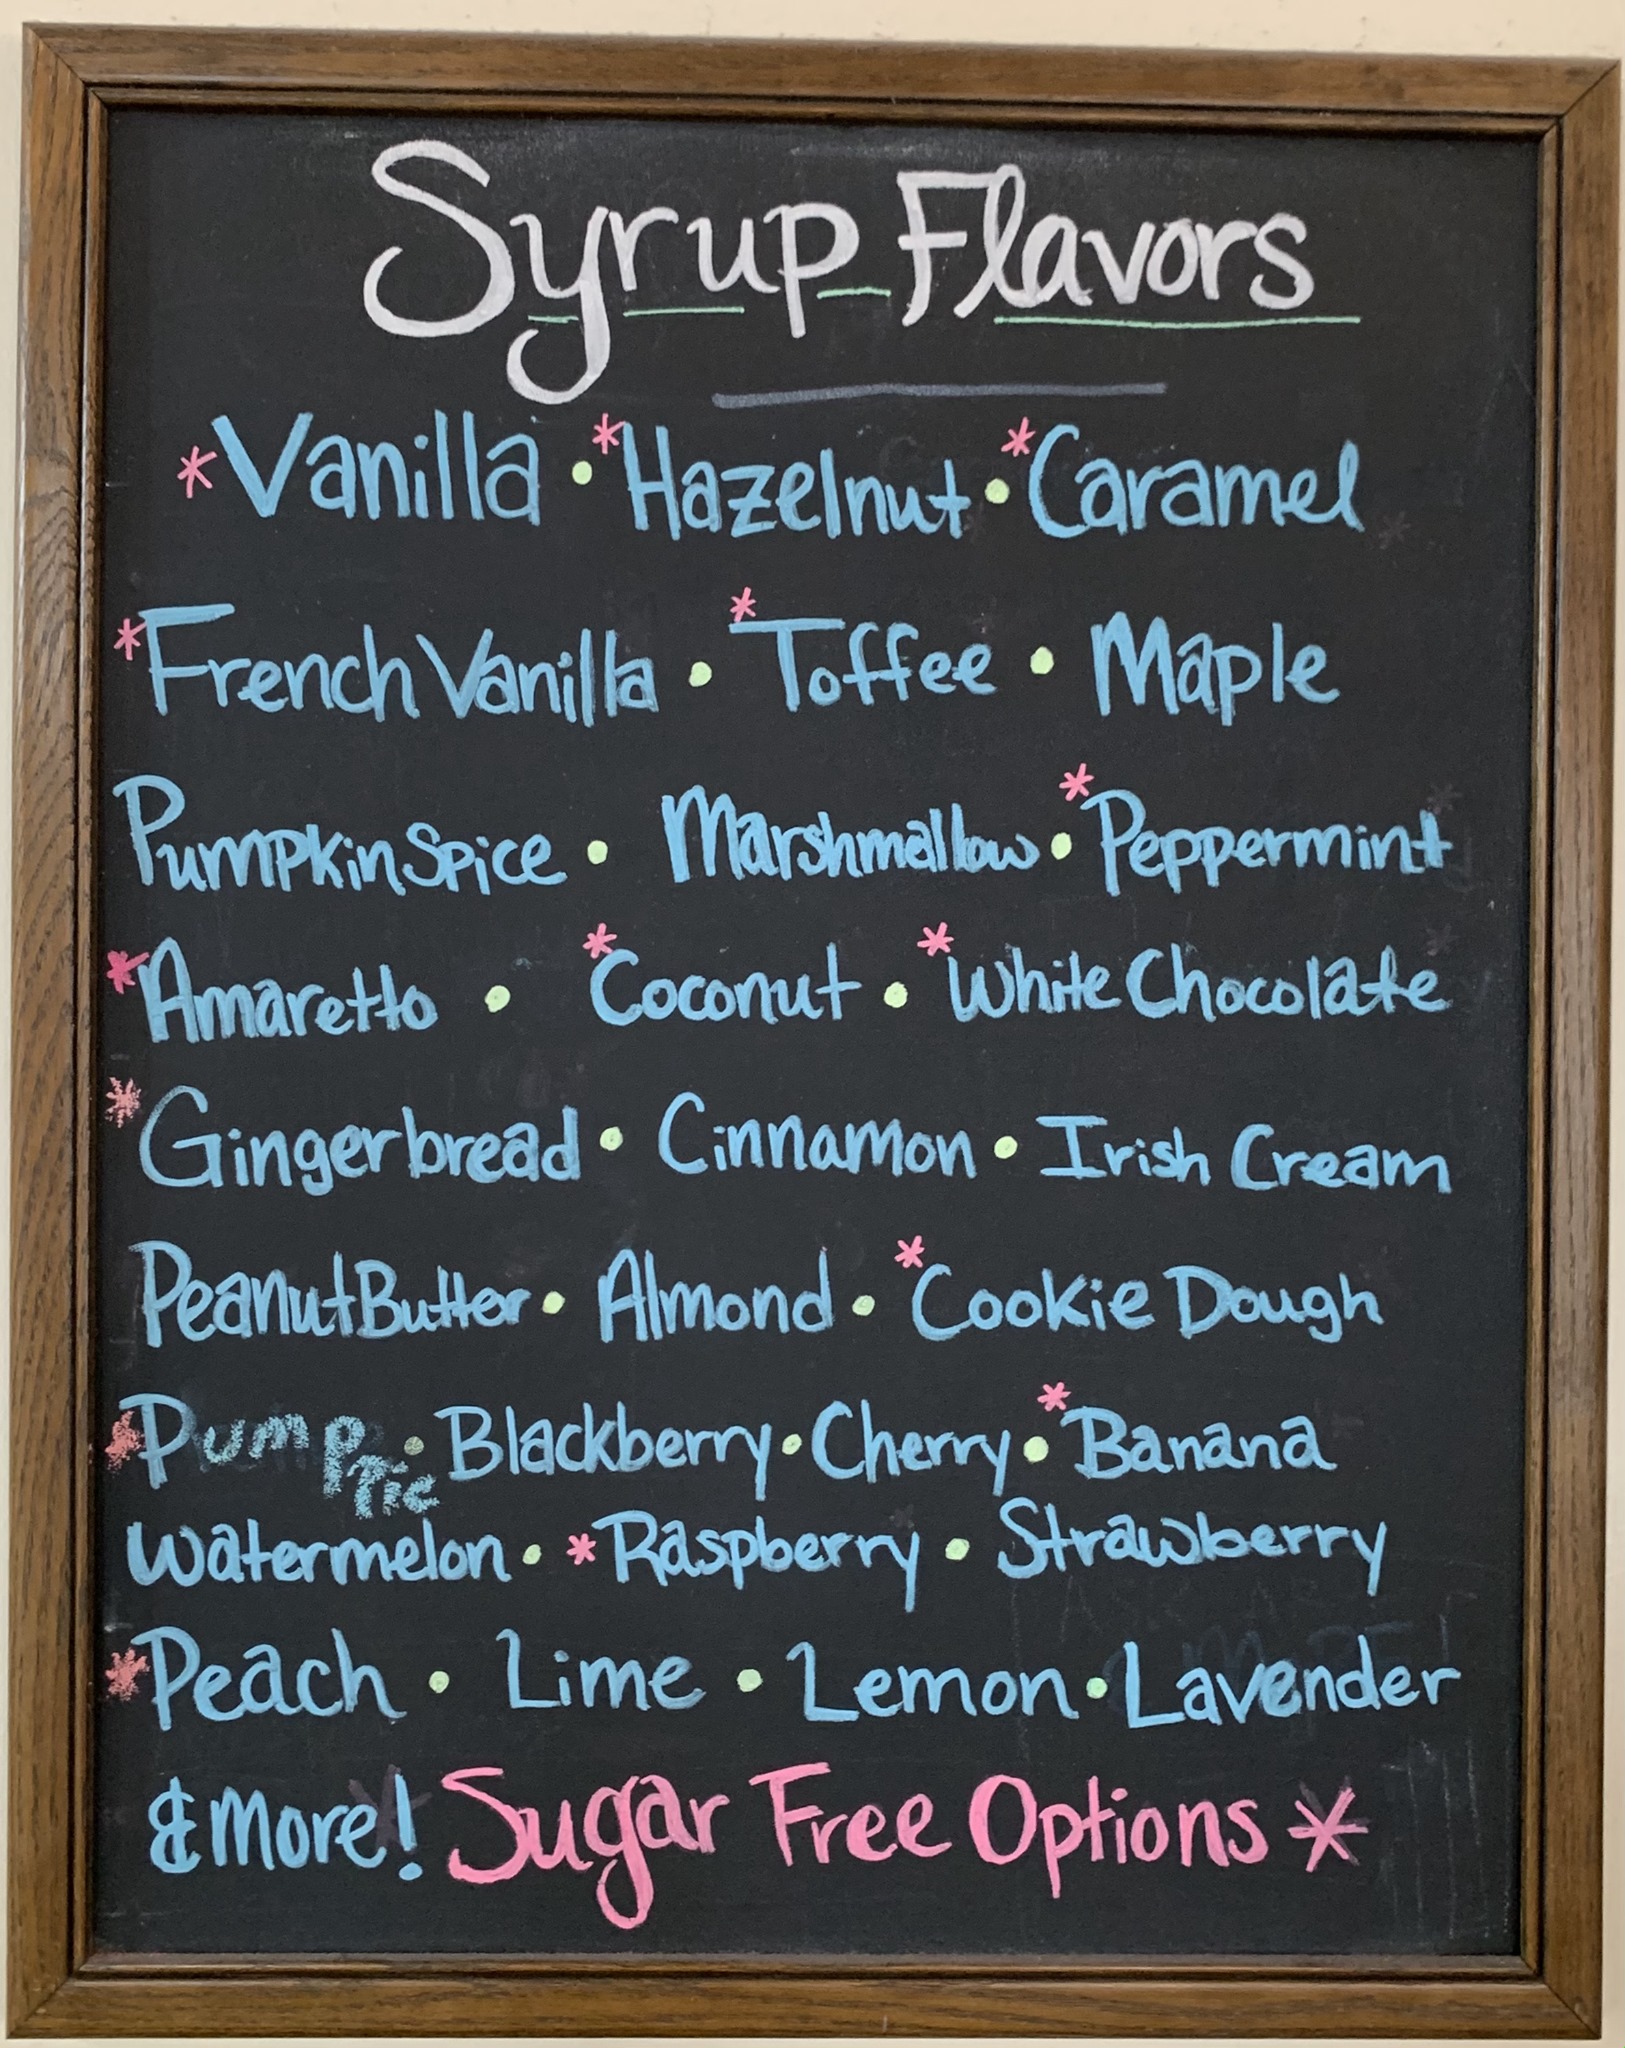 Syrup Flavors
*Vanilla • *Hazelnut • *Caramel
*French Vanilla • *Toffee • Maple
Pumpkin Spice • Marshmallow • *Peppermint
*Amaretto • *Coconut • *White Chocolate
*Gingerbread • Cinnamon • Irish Cream
Peanut Butter • Almond • *Cookie Dough
*Pump Pie • Blackberry • Cherry • *Banana
Watermelon • *Raspberry • Strawberry
*Peach • Lime • Lemon • Lavender
& more! Sugar Free Options *